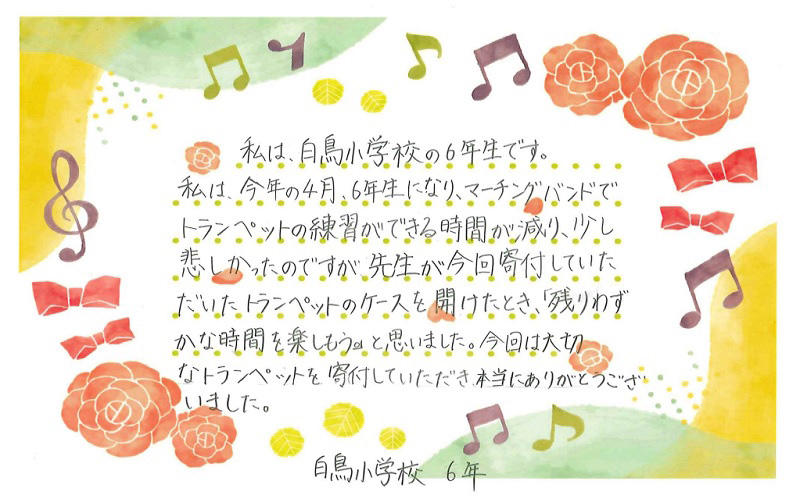 私は、白鳥小学校の6年生です。
私は、今年の4月、6年生になり、マーチングバンドで
トランペットの練習ができる時間が減り、少し
悲しかったのですが、先生が今回寄付していた
だいたトランペットのケースを開けたとき、「残りわず
かな時間を楽しもう。」と思いました。今回は大切
なトランペットを寄付していただき、本当にありがとうござ
いました。
白鳥小学校 6年